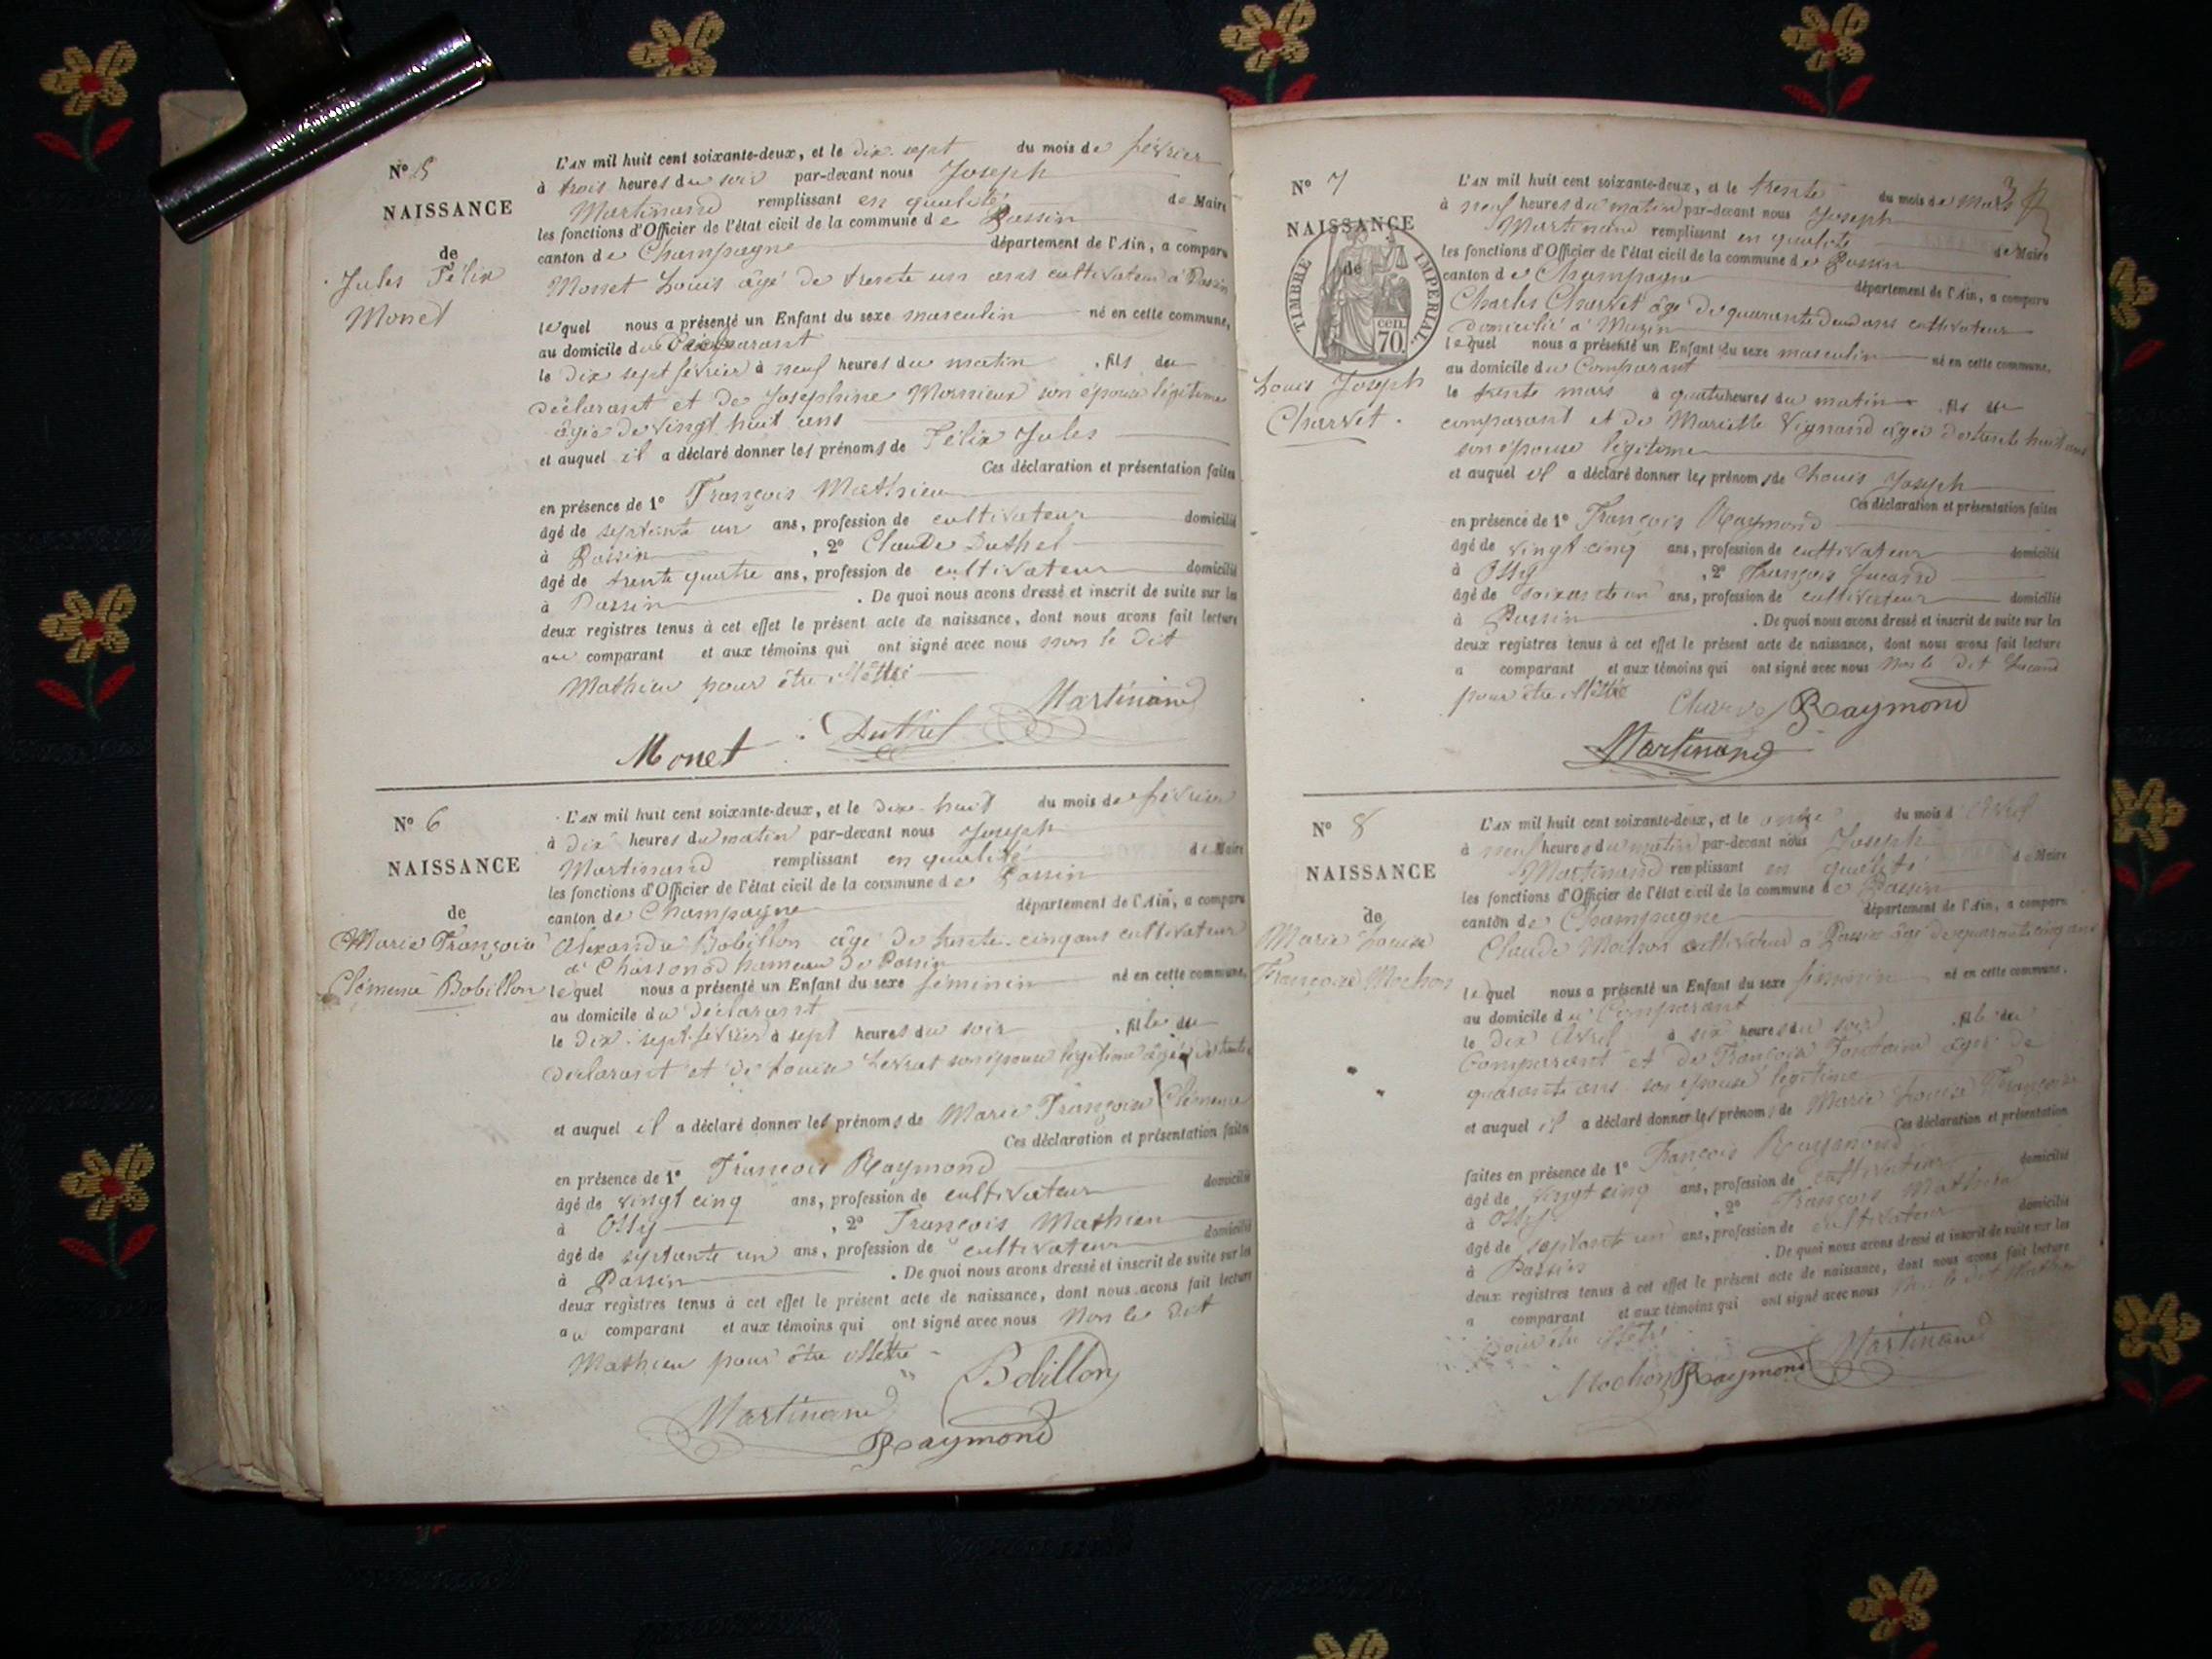 N° 5
NAISSANCE
de
Jules Félix
Monet
L'AN mil huit cent soixante-deux, et le dix-sept du mois de février
à trois heures du soir par-devant nous Joseph
Martinand remplissant en qualité de Maire
les fonctions d'Officier de l'état civil de la commune de Passin
canton de Champagne département de l'Ain, a comparu
Monet Louis âgé de trente un ans cultivateur à Passin
lequel nous a présenté un Enfant du sexe masculin né en cette commune,
au domicile du Comparant
le dix sept février à neuf heures du matin , fils du
déclarant et de Josephine son épouse légitime
âgée de vingt huit ans
et auquel il a déclaré donner les prénoms de Félix Jules
Ces déclaration et présentation faites
en présence de 1° François Mathieu
âgé de septante un ans, profession de cultivateur domicilié
à Passin , 2° Claude Duthel
âgé de trente quatre ans, profession de cultivateur domicilié
à Passin . De quoi nous avons dressé et inscrit de suite sur les
deux registres tenus à cet effet le présent acte de naissance, dont nous avons fait lecture
au comparant et aux témoins qui ont signé avec nous non le dit
Mathieu pour être illétré
Martinand
Monet Duthel
N° 6
NAISSANCE
de
Marie Françoise
Clémence Bobillon
L'AN mil huit cent soixante-deux, et le dix-huit du mois de février
à dix heures du matin par-devant nous Joseph
Martinand remplissant en qualité de Maire
les fonctions d'Officier de l'état civil de la commune de Passin
canton de Champagne département de l'Ain, a comparu
Alexandre Bobillon âgé de trente-cinq ans cultivateur
à hameau de Passin
lequel nous a présenté un Enfant du sexe féminin né en cette commune,
au domicile du déclarant
le dix-sept février à sept heures du soir , fille du
déclarant et de Louise Levrat son épouse légitime âgée de trente
et auquel il a déclaré donner les prénoms de Marie Françoise Clémence
Ces déclaration et présentation faites
en présence de 1° François Raymond
âgé de vingt cinq ans, profession de cultivateur domicilié
à Ossy , 2° François Mathieu
âgé de septante un ans, profession de cultivateur domicilié
à Passin . De quoi nous avons dressé et inscrit de suite sur les
deux registres tenus à cet effet le présent acte de naissance, dont nous avons fait lecture
au comparant et aux témoins qui ont signé avec nous Non le dit
Mathieu pour être illettré
Bobillon
Martinand
Raymond
3
N° 7
NAISSANCE
de
TIMBRE IMPÉRIAL
cen.
70.
Louis Joseph
Charvet.
L'AN mil huit cent soixante-deux, et le trente du mois de Mars
à neuf heures du matin par-devant nous Joseph
Martinand remplissant en qualité de Maire
les fonctions d'Officier de l'état civil de la commune de Passin
canton de Champagne département de l'Ain, a comparu
Charles Charvet âgé de quarante deux ans cultivateur
domicilié à Muzin
lequel nous a présenté un Enfant du sexe masculin né en cette commune,
au domicile du Comparant
le trente mars à quatre heures du matin , fils du
comparant et de Mariette Vignand âgée de trente huit ans
son épouse légitime
et auquel il a déclaré donner les prénoms de Louis Joseph
Ces déclaration et présentation faites
en présence de 1° François Raymond
âgé de vingt cinq ans, profession de cultivateur domicilié
à Ossy , 2° François Jucand
âgé de soixante un ans, profession de cultivateur domicilié
à Passin . De quoi nous avons dressé et inscrit de suite sur les
deux registres tenus à cet effet le présent acte de naissance, dont nous avons fait lecture
a comparant et aux témoins qui ont signé avec nous Non le dit Jucand
pour être illétré Charvet Raymond
Martinand
N° 8
NAISSANCE
de
Marie Louise
Françoise Mochon
L'AN mil huit cent soixante-deux, et le onze du mois d'Avril
à neuf heures du matin par-devant nous Joseph
Martinand remplissant en qualité de Maire
les fonctions d'Officier de l'état civil de la commune de Passin
canton de Champagne département de l'Ain, a comparu
Claude Mochon cultivateur à Passin âgé de quarante cinq ans
lequel nous a présenté un Enfant du sexe féminin né en cette commune.
au domicile du Comparant
le dix Avril à six heures du soir , fille du
Comparant et de Françoise Fontaine âgée de
quarante ans son épouse légitime
et auquel il a déclaré donner les prénoms de Marie Louise Françoise
Ces déclaration et présentation
faites en présence de 1° François Raymond
âgé de vingt cinq ans, profession de cultivateur domicilié
à Ossy , 2° François Mathieu
âgé de septante un ans, profession de cultivateur domicilié
à Passin . De quoi nous avons dressé et inscrit de suite sur les
deux registres tenus à cet effet le présent acte de naissance, dont nous avons fait lecture
a comparant et aux témoins qui ont signé avec nous Non le dit Mathieu
pour être illétré
Mochon Raymond Martinand